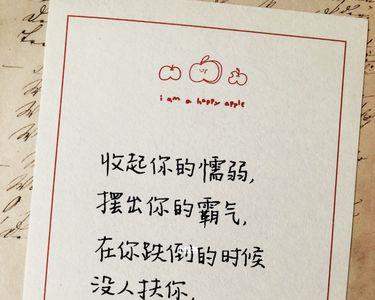 i am a happy apple
收起你的懦弱,
摆出你的霸气,
在你跌倒的时候
没人扶你,